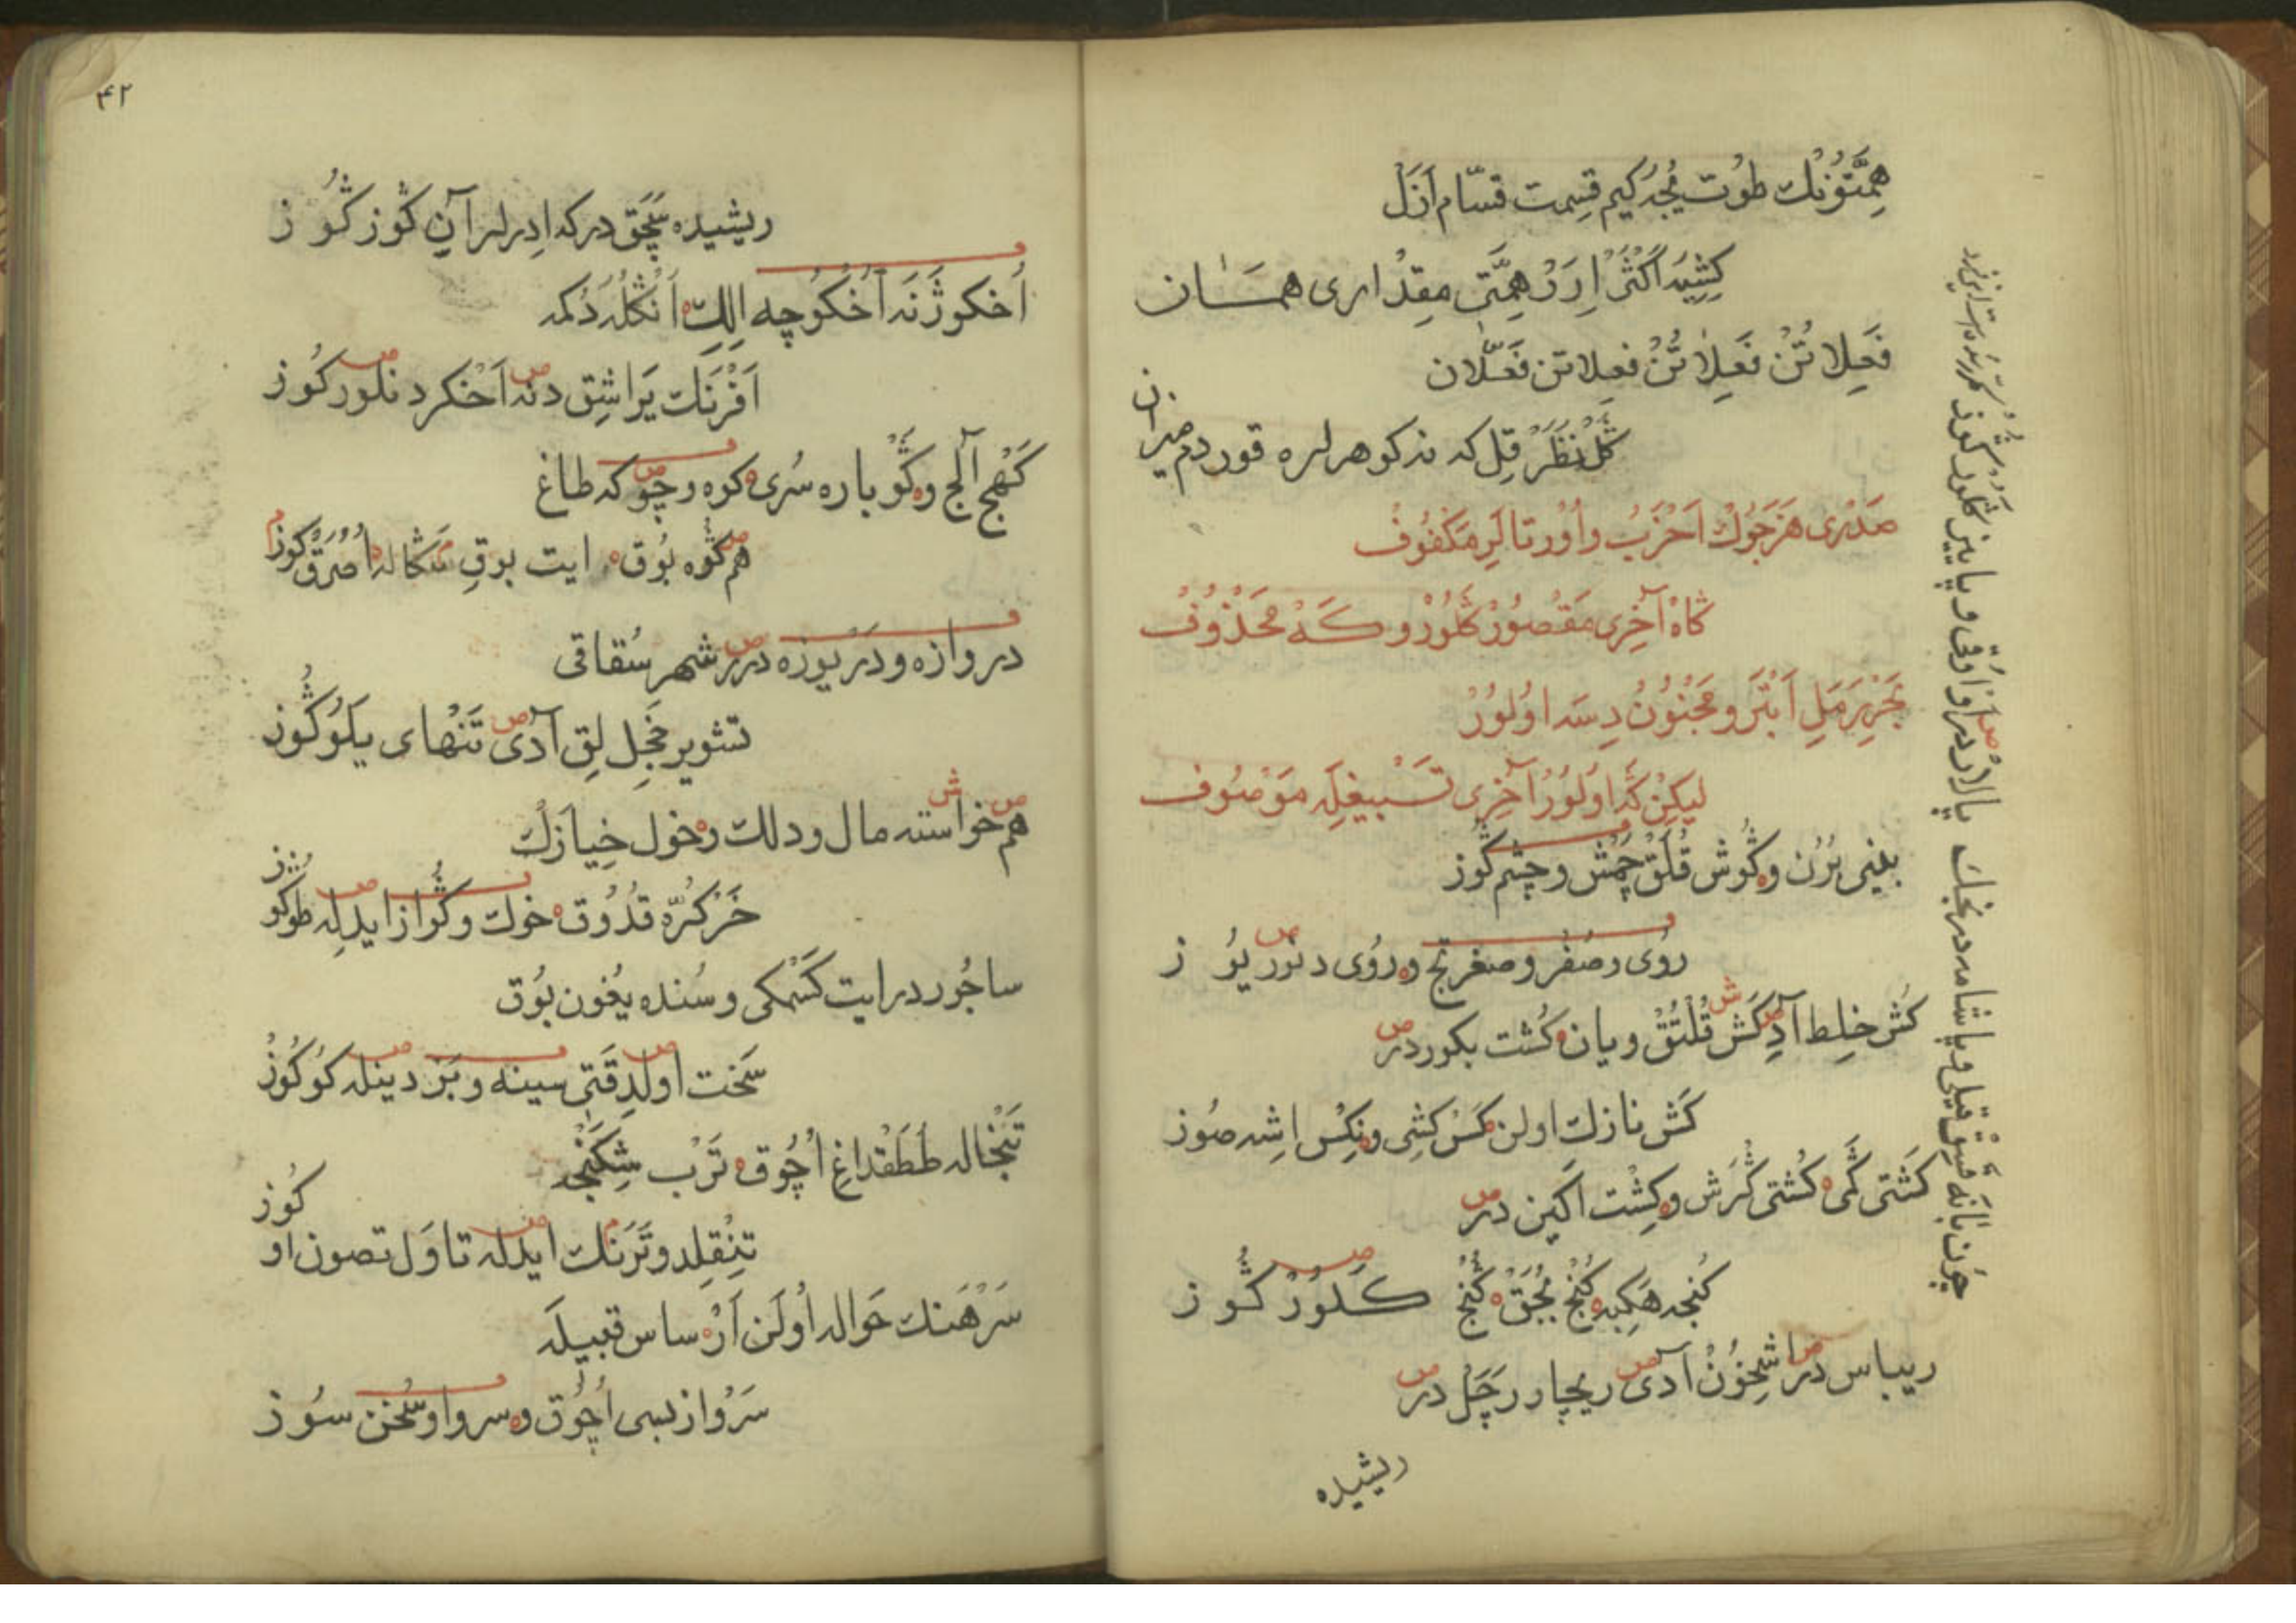 همتوڭك طوت يجه كيم قسمت قسام ازل
كشيه اكثر ارر همتى مقدارى همان
فعلاتن فعلاتن فعلاتن فعلان
كل نظر قل كه نه كوهرلره قوردم ميزان
صدرى هزجوك اخرب و اورتالر مكفوف
كاه آخرى مقصور كلور و كه محذوف
بحر رمل ابتر و مجنون دسه اولور
ليكن كه اولور آخرى تسبيغله موصوف
بينى برن و كوش قلق چمش و چشم كوز
روى و صفر و صغر تج و روى دنور يوز
كش خلط آدى كش قلتق و يان كشت بكور در
كش نازك اولن كس كشى و نكس اشه صوز
كشتى كمى كشتى كرش و كشت اكين در
كنجه هكبه كنج بجق كنج كلور كوز
ريباس در اشخون آدى ريچار رچل در
ريشيده
چون بانه قيق قيلى و پاشامه در نجك
پالار در اواوقى و پاييز كلور كوز
٤٢
ريشيده سچق در كه ادرلر آن كوز كوز
اخكوژنه اخكوچه الك انكله دكمه
افرنك يراشق دنه اخكر دنلور كوز
كهج آلج و كو باره سرى كوه رچو كه طاغ
هم كوه بوق ايت بوق سكاله اصرق كوز
دروازه و دريوزه درر شهر سقاقى
تشوير خجل لق آدى تنهاى يلو كوز
هم خواسته مال و دلك رخول خيازك
خركره قدوق خوك و كوازايدله طوكوز
ساجور در ايت كسمكى و سنده يغون بوق
سخت اولد قتى سينه و بز دينله كوكوز
تبخاله ططقداغ اچوق ترب شكنجه
تنقلد و ترنك ايدله تاول تصون اوكوز
سرهنك حواله اولن آره ساس قبيله
سرواز نبى اچوق و سروا و سخن سوز